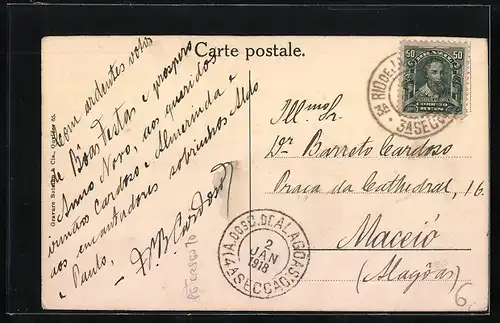 Carte postale.
Com ardentes votos
de Bôas Festas e prospero
Anno Novo, aos queridos
irmãos Cardoso e Almerinda e
aos encantadores sobrinhos Aldo
e Paulo,
Cardoso
50 50
RIO DE
3ª SECÇÃO
Ill.mo Sr.
Dr Barreto Cardoso
Praça da Cathedral, 16
Maceió
(Alagôas)
A. DOS D. DE ALAGOAS
2
JAN
1918
(4ª SECÇÃO)
6